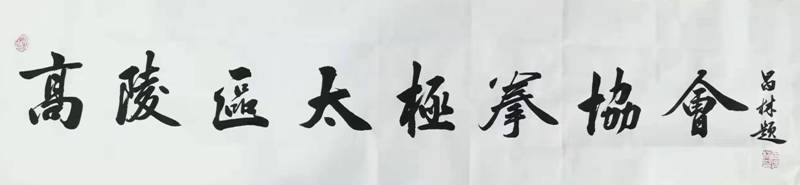 高陵區太極拳協會
昌林題